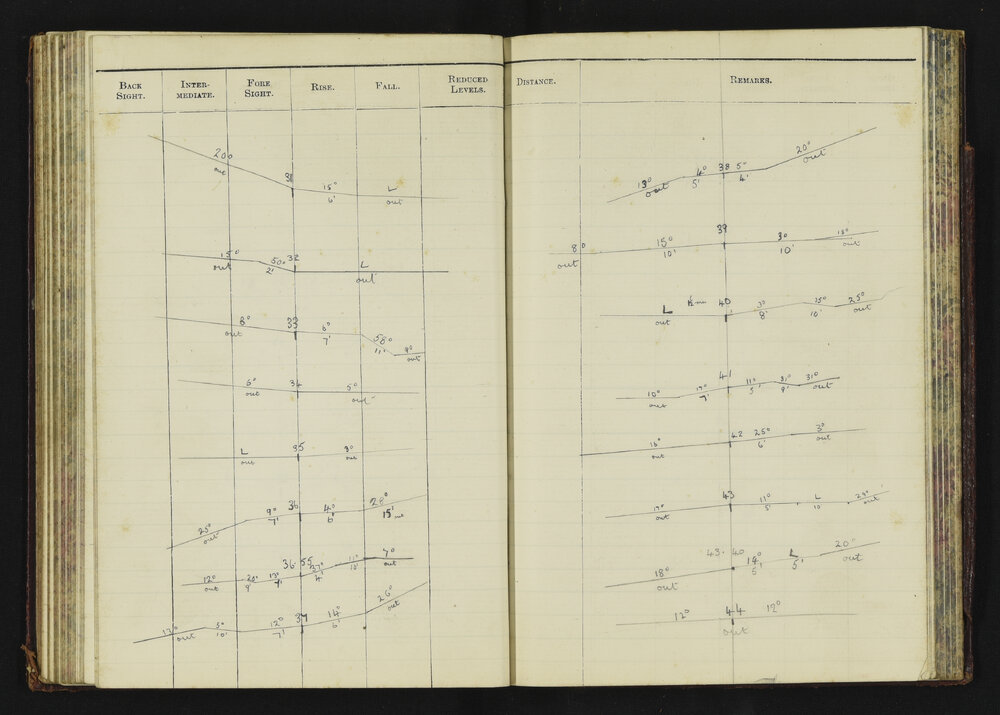 BACK SIGHT. INTER-MEDIATE. FORE SIGHT. RISE. FALL. REDUCED LEVELS.
20° out 31 15° 6' L out
15° out 50° 2' 32 L out
8° out 33 6° 7' 58° 11' 9° out
6° out 34 5° out
L out 35 3° out
25° out 9° 7' 36 4° 6' 28° 15' out
12° out 20° 9' 13° 36·55 27° 4' 11° 12' 7° out
17° out 5° 10' 12° 7' 37 14° 6' 26° out
DISTANCE. REMARKS.
13° out 4° 5' 38 5° 4' 20° out
8° out 15° 10' 39 3° 10' 13° out
L out 40 3° 8' 15° 10' 25° out
10° out 17° 7' 41 11° 5' 31° out
out 42 25° 6' 3° out
17° out 43 11° 5' L 10' out
18° out 43·40 14° 5' L 5' 20° out
12° 44 12°
out